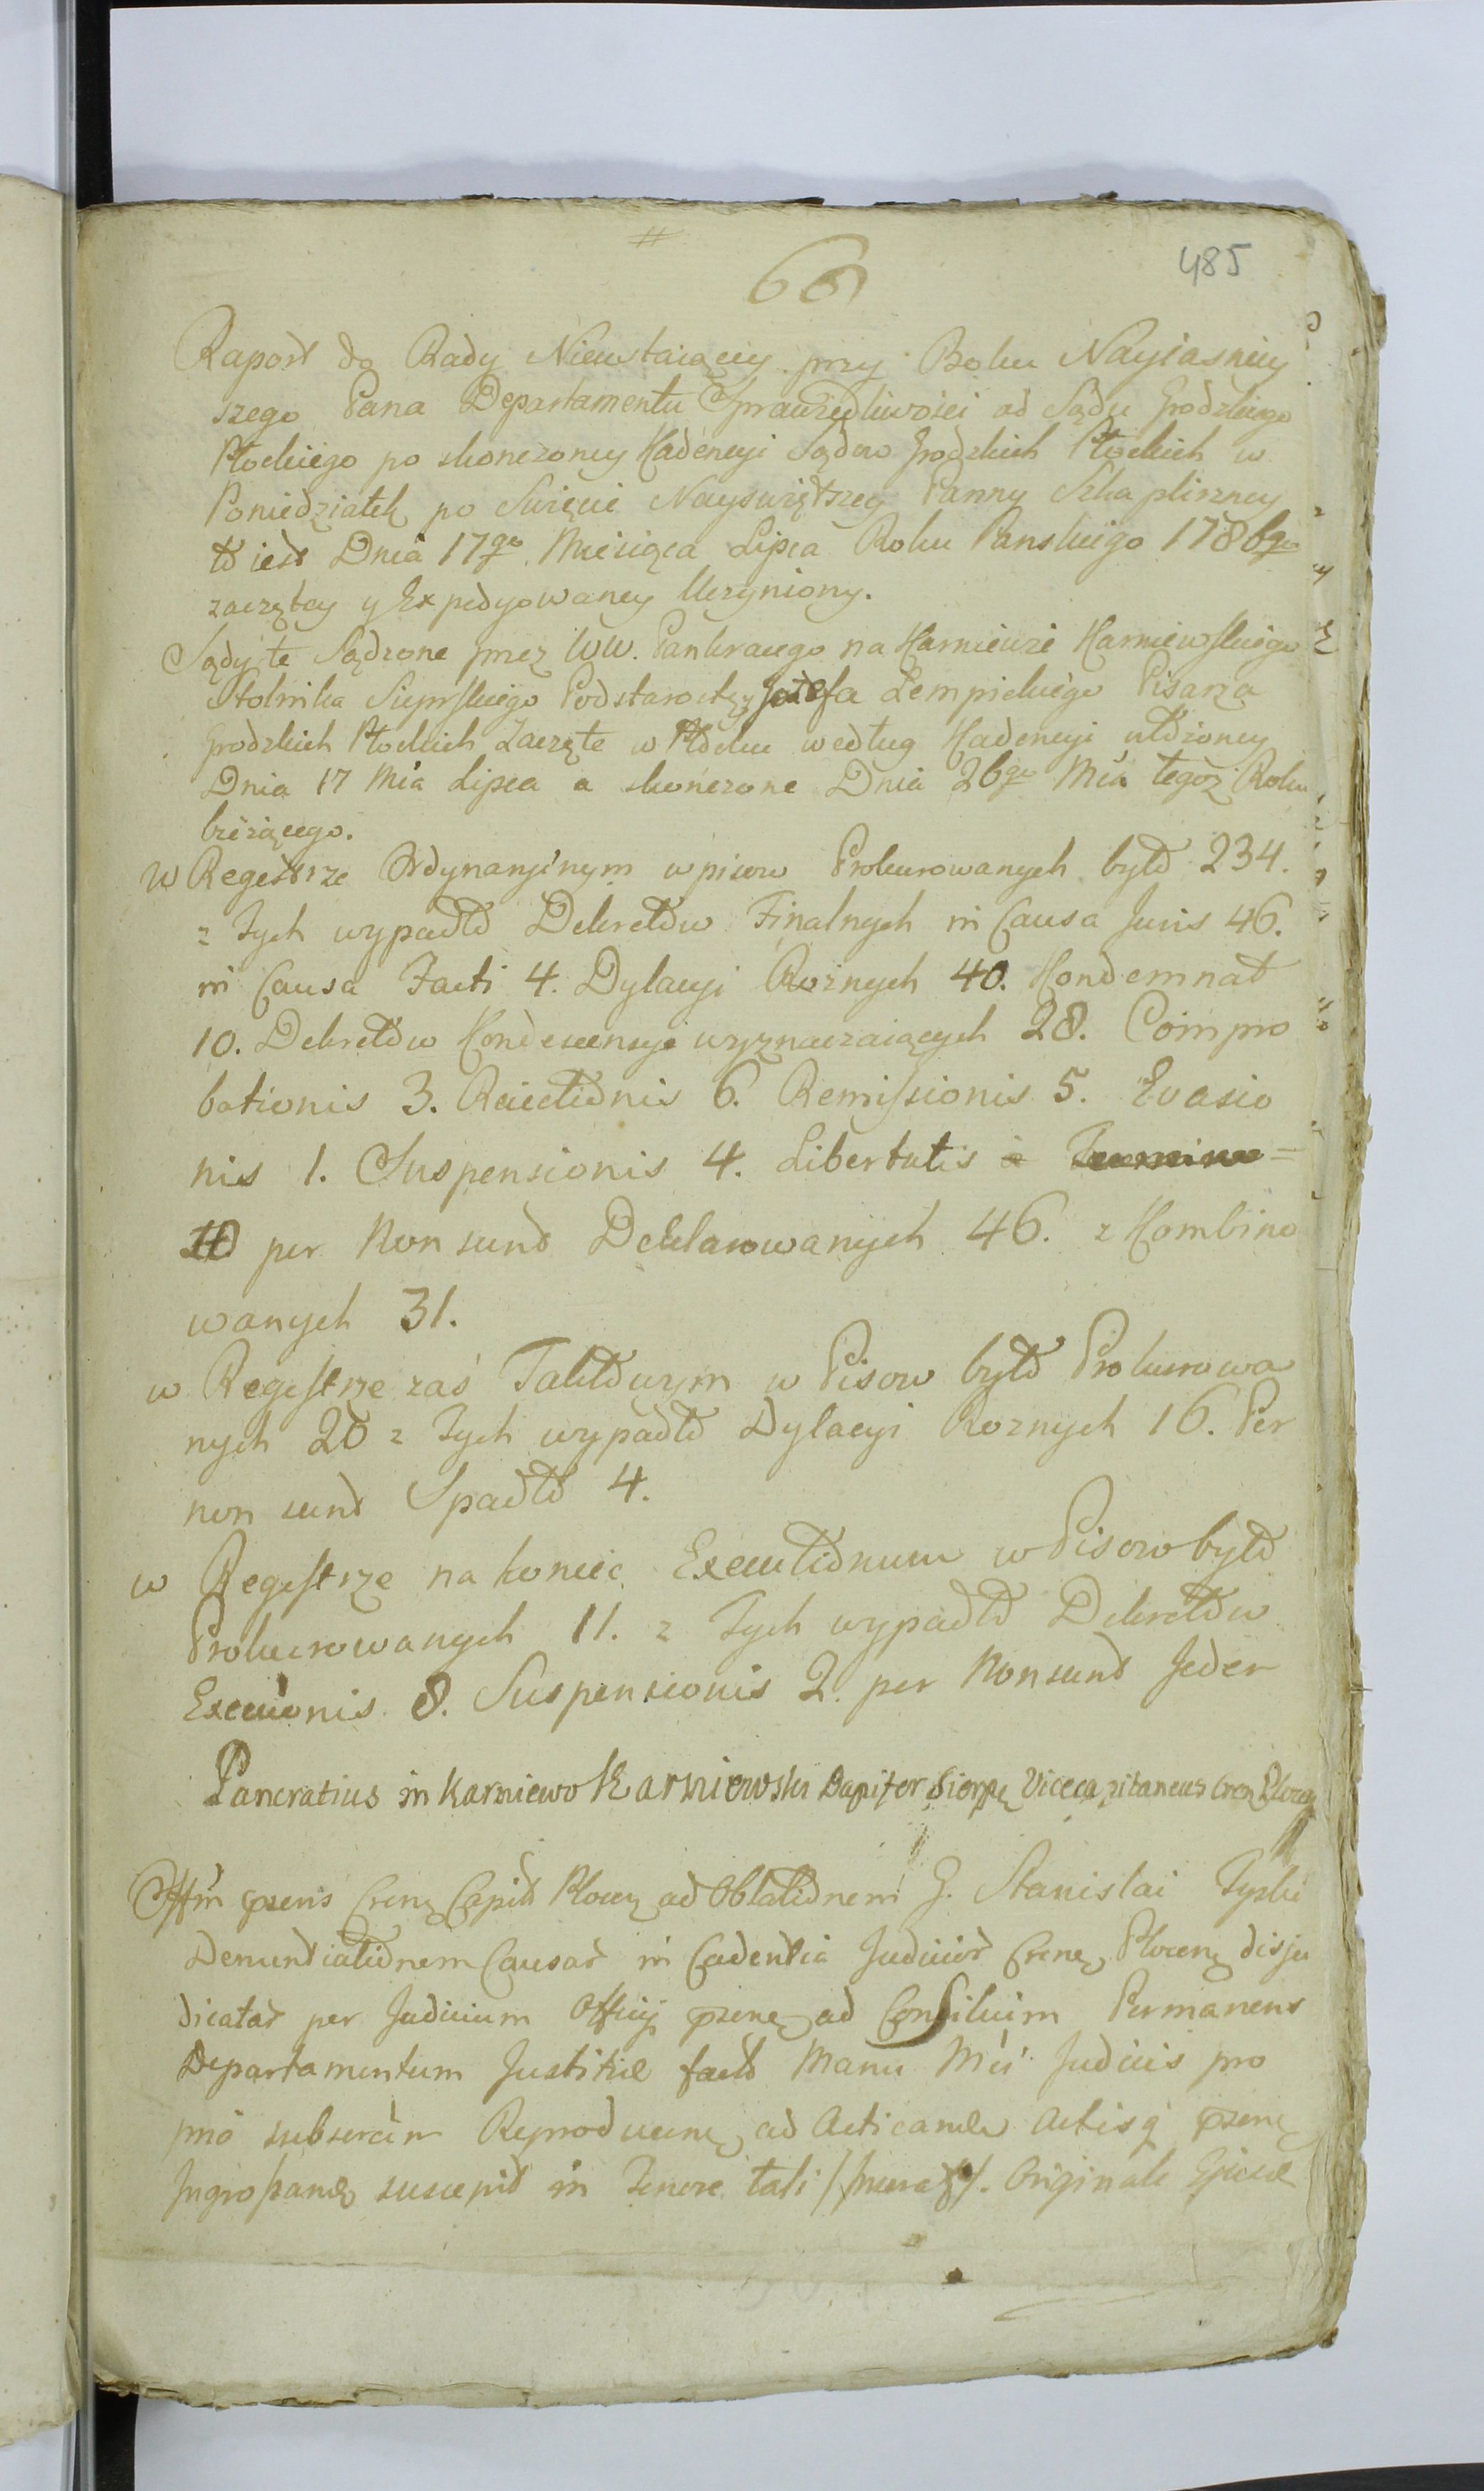 485
66
Raport do Rady Nieustaiącey przy Boku Nayiasniey
szego Pana Departamentu Sprawiedliwości od Sądu Grodzkiego
Płockiego po skonczoney Kadencyi Sądow Grodzkich Płockich w
Poniedziałek po Swięcie Nayswiętszey Panny Szkaplirzney
to iest Dnia 17go Miesiąca Lipca Roku Panskiego 1786go
zaczętey y Expedyowaney Uczyniony.
Sądy te Sądzone przez WW. Pankracego na Karniewie Karniewskiego
Stolnika Sierpskiego Podstarostę y Jozefa Lempickiego Pisarza
Grodzkich Płockich Zaczęte w Płocku według Kadencyi ułożoney
Dnia 17 Mca Lipca a skończone Dnia 26go Mca tegoż Roku
bieżącego.
W Regestrze Ordynaryinym wpisow Prokurowanych było 234.
z Tych wypadło Dekretow Finalnych in Causa Juris 46.
in Causa Facti 4. Dylacyi Rożnych 40. Kondemnat
10. Dekretow Kondescensye wyznaczaiących 28. Compro
bationis 3. Reiectionis 6. Remissionis 5. Evasio
nis 1. Suspensionis 4. Libertatis a Termino=
10 per Non sunt Deklarowanych 46. z Kombino
wanych 31.
w Regestrze zaś Taktowym w Pisow było Prokurowa
nych 20 z Tych wypadło Dylacyi Roznych 16. Per
non sunt Spadło 4.
w Regestrze na koniec Executionum w Pisow było
Prokurowanych 11. z Tych wypadło Dekretow
Execuonis 8. Suspensionis 2. per Non sunt Jeden
Pancratius in Karniewo Karniewski Dapifer Sierpę Vicecapitaneus Cren Plocen
Offm psens Crenę Capit Plocen ad Oblationem G. Stanislai Tyski
Denuntiationem Causar in Cadentia Judicior Crenę Plocenę disju
dicatar per Judicium Officij psenę ad Consilium Permanens
Departamentum Justitiæ fact Manu Mci Judicis pro
pria subscram Reproducenę ad Acticandū Actisq psenę
Ingrossandę suscepit in Tenore tali Originale Ejusd